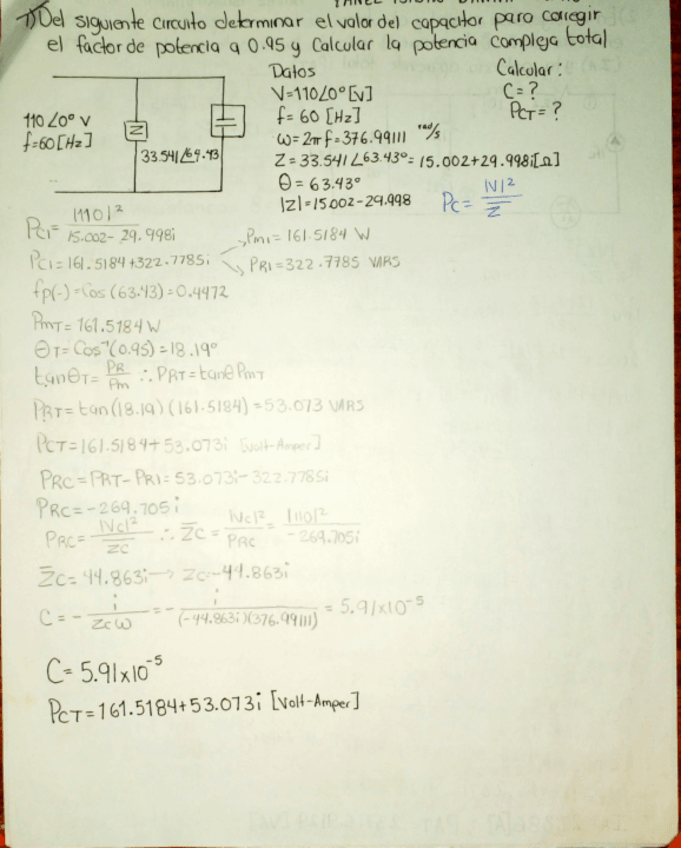 7) Del siguiente circuito determinar el valor del capacitor para corregir
el factor de potencia a 0.95 y Calcular la potencia compleja total
110∠0° V
f=60[Hz]
Z
33.541∠64.43
Datos
V=110∠0°[V]
f= 60 [Hz]
ω=2πf=376.99111 rad/s
Z=33.541∠63.43°=15.002+29.998i[Ω]
Θ=63.43°
|Z|=15.002-29.998
Calcular:
C=?
PCT=?
Pc= |V|² / Z̅
PC1= |110|² / 15.002-29.998i
PC1=161.5184+322.7785i
Pm1=161.5184 W
PR1=322.7785 VARS
fp(-)=Cos(63.43)=0.4472
PmT=161.5184W
ΘT=Cos⁻¹(0.95)=18.19°
tanΘT= PR / Pm ∴ PRT=tanΘPmT
PRT=tan(18.19)(161.5184)=53.073 VARS
PCT=161.5184+53.073i [Volt-Amper]
PRC=PRT-PR1=53.073i-322.7785i
PRC=-269.705i
PRC= |Vc|² / Z̅C ∴ Z̅C= |Vc|² / PRC = |110|² / -269.705i
Z̅C=44.863i→ZC-44.863i
C=- i / ZCω =- i / (-44.863i)(376.99111) = 5.91x10⁻⁵
C=5.91x10⁻⁵
PCT=161.5184+53.073i [Volt-Amper]